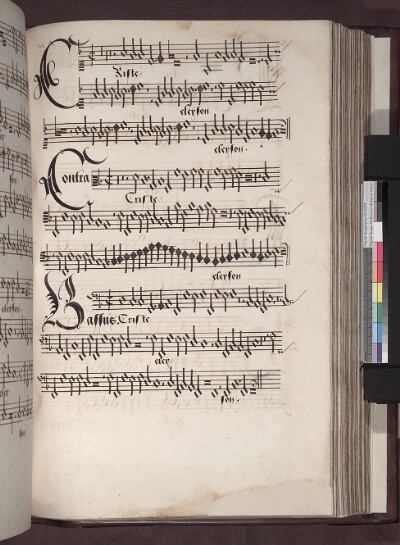 Criste
eleyson
eleyson.
Contra
Criste
eleyson
Bassus Criste
eley
son.